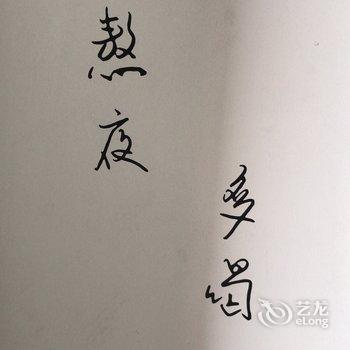 熬夜
多喝
艺龙
eLong